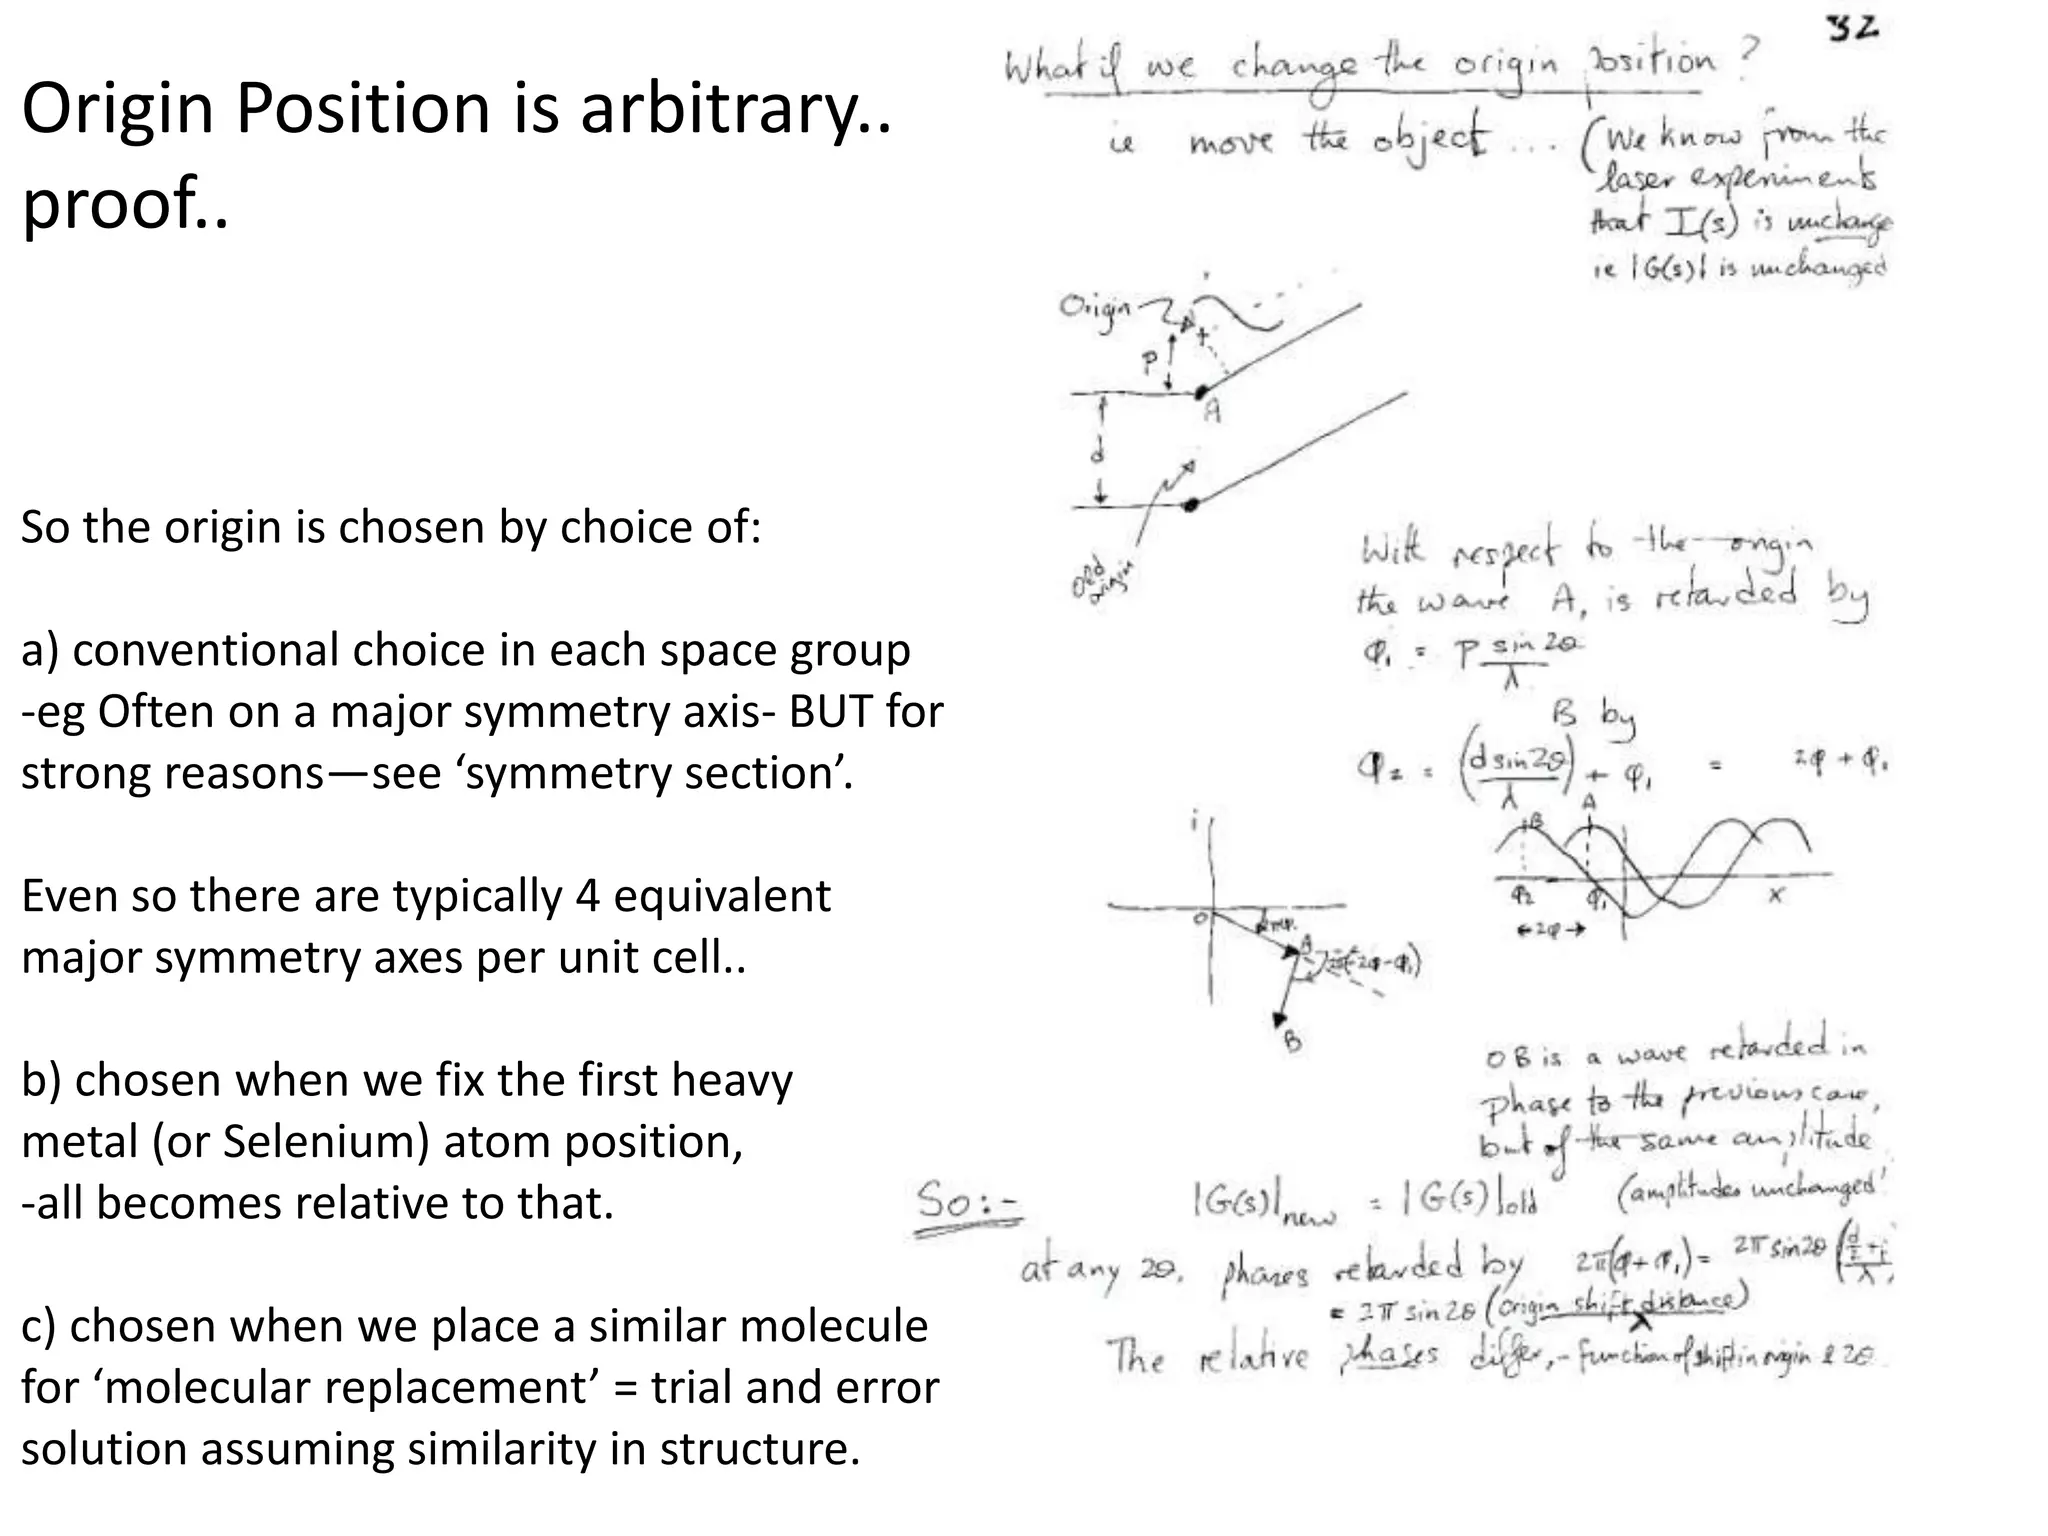 Origin Position is arbitrary..
proof..
So the origin is chosen by choice of:
a) conventional choice in each space group
-eg Often on a major symmetry axis- BUT for
strong reasons—see ‘symmetry section’.
Even so there are typically 4 equivalent
major symmetry axes per unit cell..
b) chosen when we fix the first heavy
metal (or Selenium) atom position,
-all becomes relative to that.
c) chosen when we place a similar molecule
for ‘molecular replacement’ = trial and error
solution assuming similarity in structure.
32
What if we change the origin position ?
ie move the object ... (We know from the
laser experiments
that I(s) is unchange
ie |G(s)| is unchanged
Origin
P
A
d
Old
origin
With respect to the origin
the wave A, is retarded by
φ₁ = P sin 2θ / λ
B by
φ₂ = (d sin 2θ / λ) + φ₁ = 2φ + φ₁
i
O
A
B
B
A
φ₂
φ₁
x
←2φ→
OB is a wave retarded in
phase to the previous case,
but of the same amplitude
So:-
|G(s)|new = |G(s)|old (amplitudes unchanged
at any 2θ, phases retarded by 2π(φ+φ₁) = 2π sin2θ
= 2π sin 2θ (origin shift distance) / λ
The relative phases differ, - function of shift in origin & 2θ